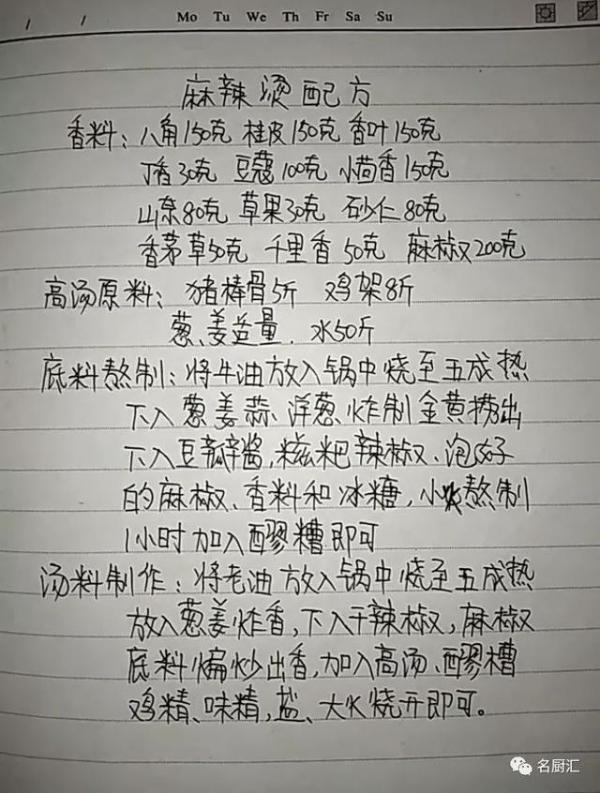 / /
Mo Tu We Th Fr Sa Su
麻辣烫配方
香料:八角150克 桂皮150克 香叶150克
丁香30克 豆蔻100克 小茴香150克
山奈80克 草果30克 砂仁80克
香茅草50克 千里香50克 麻椒200克
高汤原料:猪棒骨5斤 鸡架8斤
葱、姜适量、水50斤
底料熬制:将牛油放入锅中烧至五成热
下入葱姜蒜、洋葱、炸制金黄捞出
下入豆瓣酱,糍粑辣椒、泡好
的麻椒、香料和冰糖,小火熬制
1小时加入醪糟即可
汤料制作:将老油放入锅中烧至五成热
放入葱姜炸香,下入干辣椒,麻椒
底料煸炒出香,加入高汤、醪糟
鸡精、味精,盐、大火烧开即可。
名厨汇